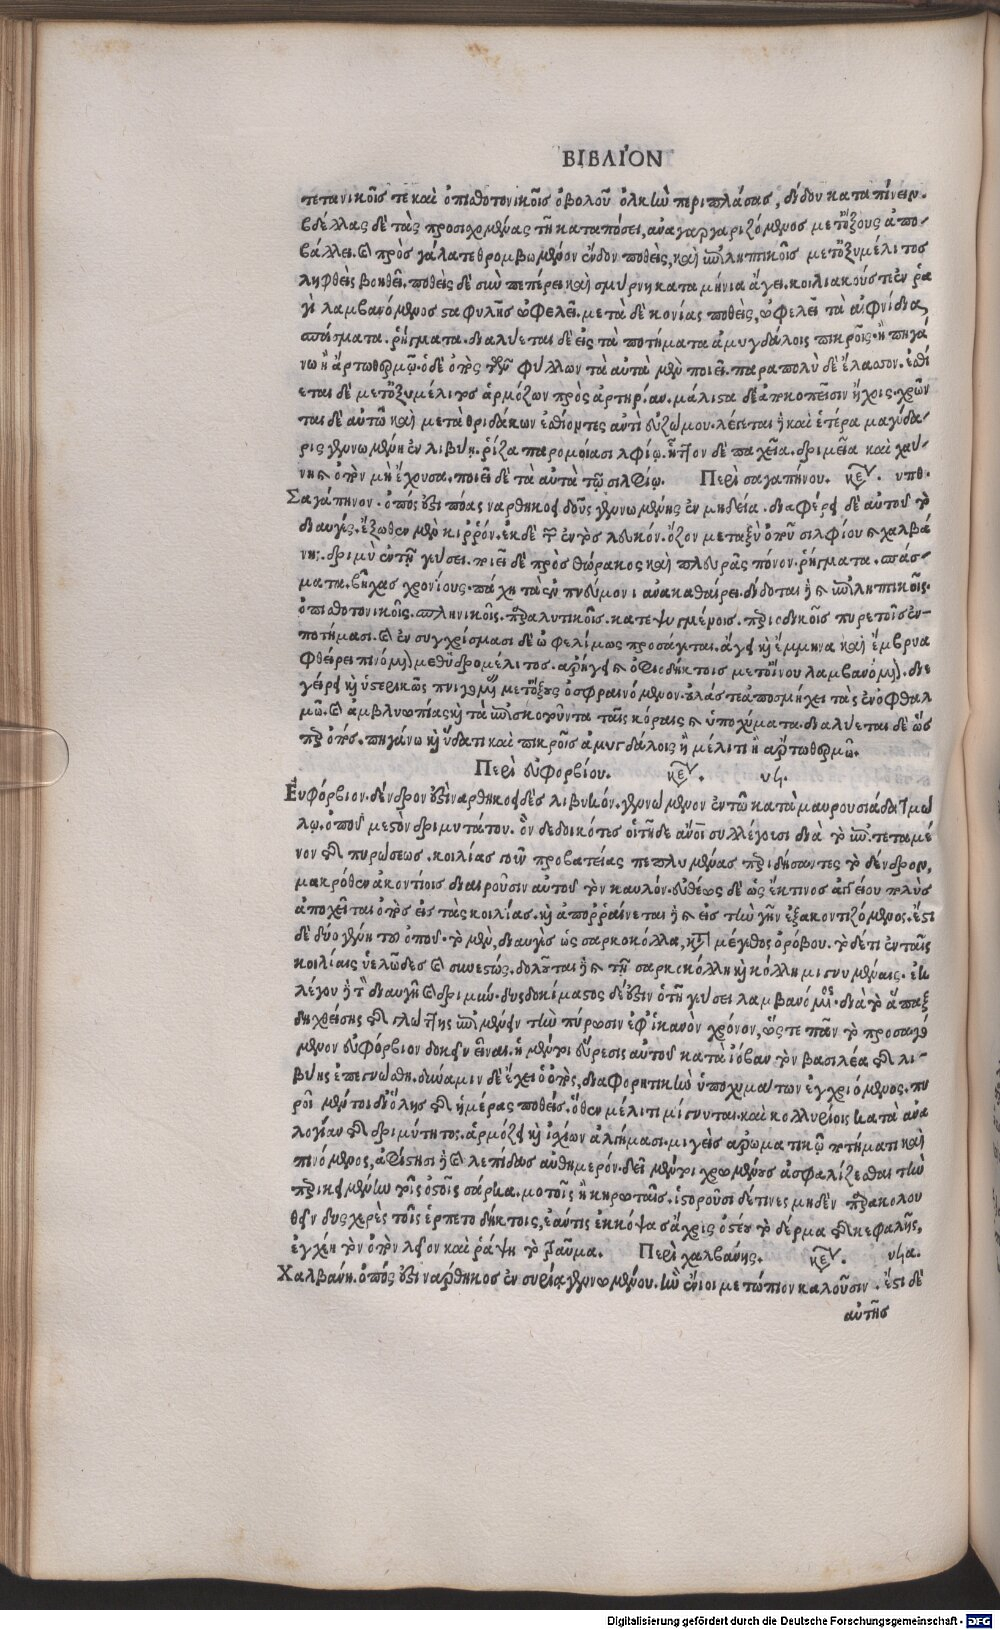 ΒΙΒΛΙΌΝ
τετανικοῖς τε καὶ ὀπισθοτονικοῖς ὀβολοῦ ὁλκὴν περιπλάσας, δίδου καταπίνειν.
βδέλλας δὲ τὰς προσισχομένας τῇ καταπόσει, ἀναγαργαριζόμενος μετ᾽ ὄξους ἀπο-
βάλλει. καὶ πρὸς γάλα τεθρομβωμένον ἔνδον ποθεὶς, καὶ ἐπιληπτικοῖς μετ᾽ ὀξυμέλιτος
ληφθεὶς βοηθεῖ. ποθεὶς δὲ σὺν πεπέρει καὶ σμύρνῃ καταμήνια ἄγει. κοιλιακούς τε ἐν ῥα
γὶ λαμβανόμενος σταφυλῆς ὠφελεῖ. μετὰ δὲ κονίας ποθεὶς, ὠφελεῖ τὰ αἰφνίδια
σπάσματα. ῥήγματα. διαλύεται δὲ εἰς τὰ ποτήματα ἀμυγδάλοις πικροῖς. ἢ πηγά
νῳ ἢ ἄρτῳ θερμῷ. ὁ δὲ ὀπὸς τῶν φύλλων τὰ αὐτὰ μὲν ποιεῖ. παραπολὺ δὲ ἔλασσον. ἐσθί
εται δὲ μετ᾽ ὀξυμέλιτος ἁρμόζων πρὸς ἀρτηρίαν. μάλιστα δὲ ἀποκοπεῖσιν ἦχοις. χρῶν
ται δὲ αὐτῷ καὶ μετὰ θριδάκων ἐσθίοντες ἀντὶ εὐζώμου. λέγεται ἢ καὶ ἑτέρα μαγύδα-
ρις γεννωμένη ἐν λιβύῃ. ῥίζα παρομοία σιλφίῳ. ἧττον δὲ παχεῖα. δριμεῖα καὶ χαύ-
νη καὶ ὀπὸν μὴ ἔχουσα. ποιεῖ δὲ τὰ αὐτὰ τῷ σιλφίῳ. Περὶ σαγαπήνου. κεφ. υπθ.
Σαγάπηνον. ὀπός ἐστι πόας ναρθηκοειδοῦς γεννωμένης ἐν μηδείᾳ. διαφέρει δὲ αὐτοῦ τὸ
διαυγές. ἔξωθεν μὲν κιρρόν. ἐκ δὲ τῶν ἐντὸς λευκόν. ὄζον μεταξὺ ὀποῦ σιλφίου καὶ χαλβά
νης. δριμὺ ἐν τῇ γεύσει. ποιεῖ δὲ πρὸς θώρακος καὶ πλευρᾶς πόνον. ῥήγματα. σπάσ-
ματα. βῆχας χρονίους. πάχη τὰ ἐν πνεύμονι ἀνακαθαίρει. δίδοται ἢ καὶ ἐπιληπτικοῖς.
ὀπισθοτονικοῖς. σπληνικοῖς. παραλυτικοῖς. κατεψυγμένοις. περιοδικοῖς πυρετοῖς ἐν-
ποτήμασι. καὶ ἐν συγχρίσμασι δὲ ὠφελίμως προσάγεται. ἄγει καὶ ἔμμηνα καὶ ἔμβρυα
φθείρει πινόμενον μεθ᾽ ὑδρομέλιτος. ἀρήγει καὶ ὀφιοδήκτοις μετ᾽ οἴνου λαμβανόμενον. διε
γείρει καὶ ὑστερικῶς πνιγομένας μετ᾽ ὄξους ὀσφραινόμενον. οὐλάς τε ἀποσμήχει τὰς ἐν ὀφθαλ
μῷ. καὶ ἀμβλυωπίας καὶ τὰ ἐπισκοτοῦντα ταῖς κόραις καὶ ὑποχύματα. διαλύεται δὲ ὥς
περ ὀπὸς. πηγάνῳ καὶ ὕδατι καὶ πικροῖς ἀμυγδάλοις ἢ μέλιτι ἢ ἄρτῳ θερμῷ.
Περὶ εὐφορβίου. κεφ. υϟ.
Εὐφόρβιον. δένδρον ἐστὶ ναρθηκοειδὲς λιβυκόν. γεννώμενον ἐν τῷ κατὰ μαυρουσιάδα τμώ
λῳ. ὀποῦ μεστὸν δριμυτάτου. ὃν δεδοικότες οἱ τῇδε ἄνθρωποι συλλέγουσι διὰ τὸ ἐπιτεταμέ
νον τῆς πυρώσεως. κοιλίας οὖν προβατείας πεπλυμένας περιδήσαντες τῷ δένδρον,
μακρόθεν ἀκοντίοις διαιροῦσιν αὐτοῦ τὸν καυλόν. εὐθέως δὲ ὡς ἔκ τινος ἀγγείου πολὺς
ἀποχεῖται ὀπὸς εἰς τὰς κοιλίας. καὶ ἀπορραίνεται ἢ καὶ εἰς τὴν γῆν ἐξακοντιζόμενος. ἔστι
δὲ δύο γένη τοῦ ὀποῦ. τὸ μὲν, διαυγὲς ὡς σαρκοκόλλα, κατὰ μέγεθος ὀρόβου. τὸ δέ τι ἐν ταῖς
κοιλίαις ὑελῶδες καὶ συνεστώς. δολοῦται ἢ καὶ τῇ σαρκοκόλλῃ καὶ κόλλῃ μιγνυμέναις. ἐκ
λέγου ἢ τὸ διαυγῆ καὶ δριμύν. δυσδοκίμαστος δέ ἐστιν ὁ τῇ γεύσει λαμβανόμενος. διὰ τὸ ἅπαξ
δηχθείσης τῆς γλώττης ἐπιμένειν τὴν πύρωσιν ἐφ᾽ ἱκανὸν χρόνον, ὥστε πᾶν τὸ προσαγό
μενον εὐφόρβιον δοκεῖν εἶναι. ἡ μέντοι εὕρεσις αὐτοῦ κατὰ ἰόβαν τὸν βασιλέα τῆς λι-
βύης ἐπεγνώσθη. δύναμιν δὲ ἔχει ὁ ὀπὸς, διαφορητικὴν ὑποχυμάτων ἐγχριόμενος. πυ
ροῖ μέντοι δι᾽ ὅλης τῆς ἡμέρας ποθείς. ὅθεν μέλιτι μίγνυται. καὶ κολλυρίοις κατὰ ἀνα
λογίαν τῆς δριμύτητος. ἁρμόζει καὶ ἰσχίων ἀλγήμασι. μιγεὶς ἀρωματικῷ ποτήματι καὶ
πινόμενος, ἀφίστησι ἢ καὶ λεπίδας αὐθημερόν. δεῖ μέντοι χρωμένους ἀσφαλίζεσθαι τὴν
περικειμένην τοῖς ὀστοῖς σάρκα. μοτοῖς ἢ κηρωταῖς. ἱστοροῦσι δέ τινες μηδὲν παρακολου
θεῖν δυσχερὲς τοῖς ἑρπετοδήκτοις, ἐάν τις ἐκκόψας ἄχρις ὀστέου τὸ δέρμα τῆς κεφαλῆς,
ἐγχέῃ τὸν ὀπὸν λεῖον καὶ ῥάψῃ τὸ τραῦμα. Περὶ χαλβάνης. κεφ. υϟα.
Χαλβάνη. ὀπός ἐστι νάρθηκος ἐν συρίᾳ γεννωμένου. ἣν ἔνιοι μετώπιον καλοῦσιν. ἔστι δὲ
αὐτῆς
Digitalisierung gefördert durch die Deutsche Forschungsgemeinschaft - DFG